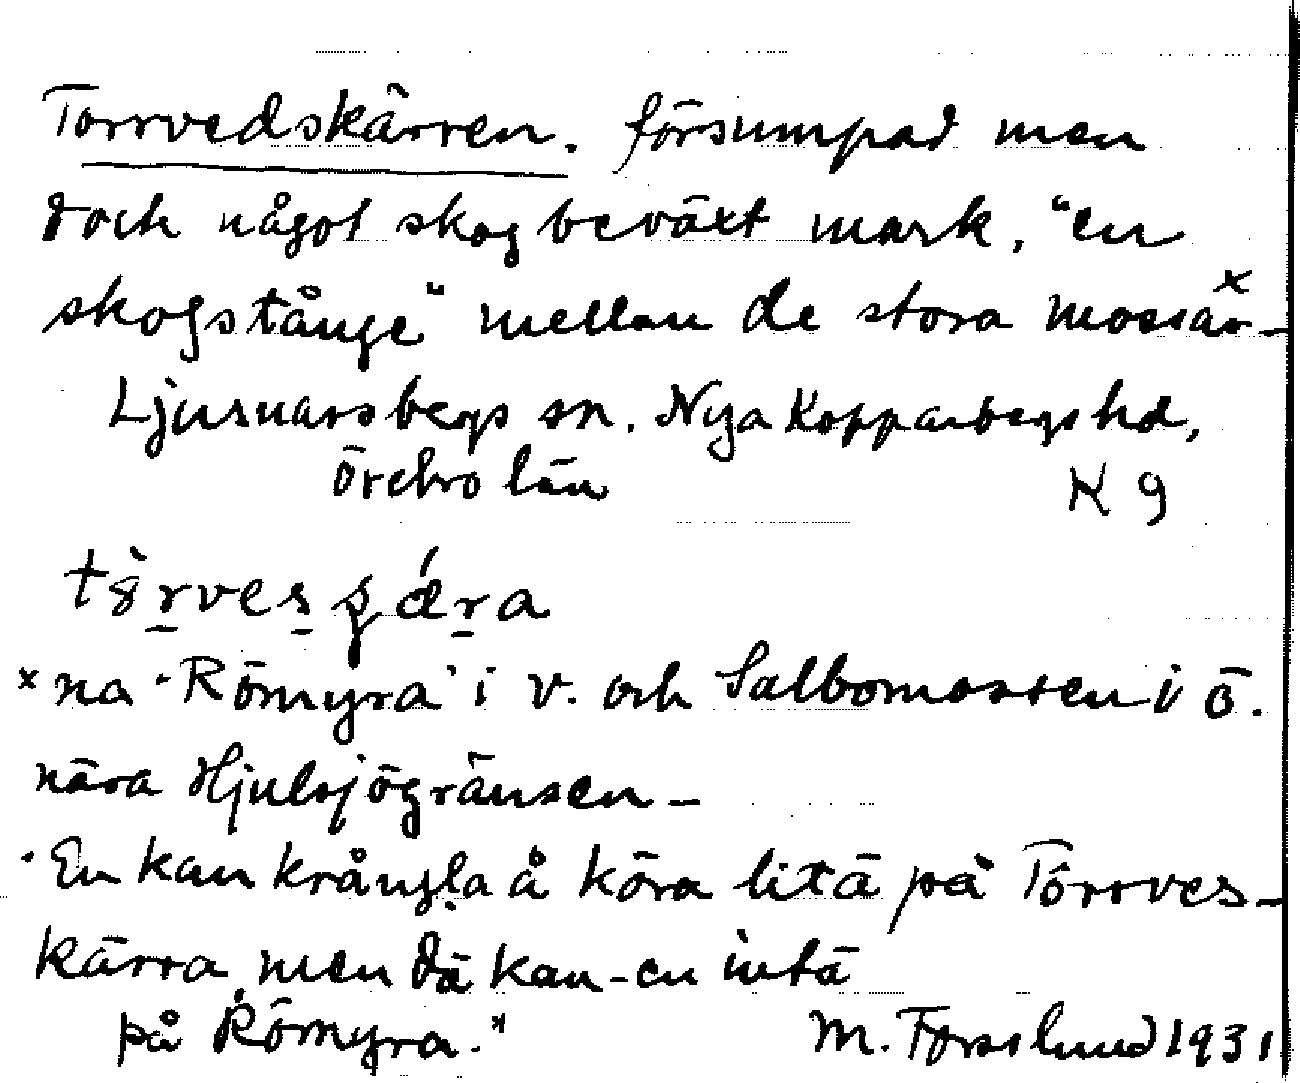 Torrvedskärren. försumpad men
doch något skog beväxt mark, "en
skogstånge" mellan de stora mossar-
Ljusnarsbergs sn. Nya Kopparbergs hd,
Örebro län K 9
x na "Römyra" i v. och Salbomossen i ö.
nära Hjulsjögränsen -
"En kan krångla å köra litä på Törrves-
kärra, men dä kan-en intä
på Römyra."
M. Forsslund 1931